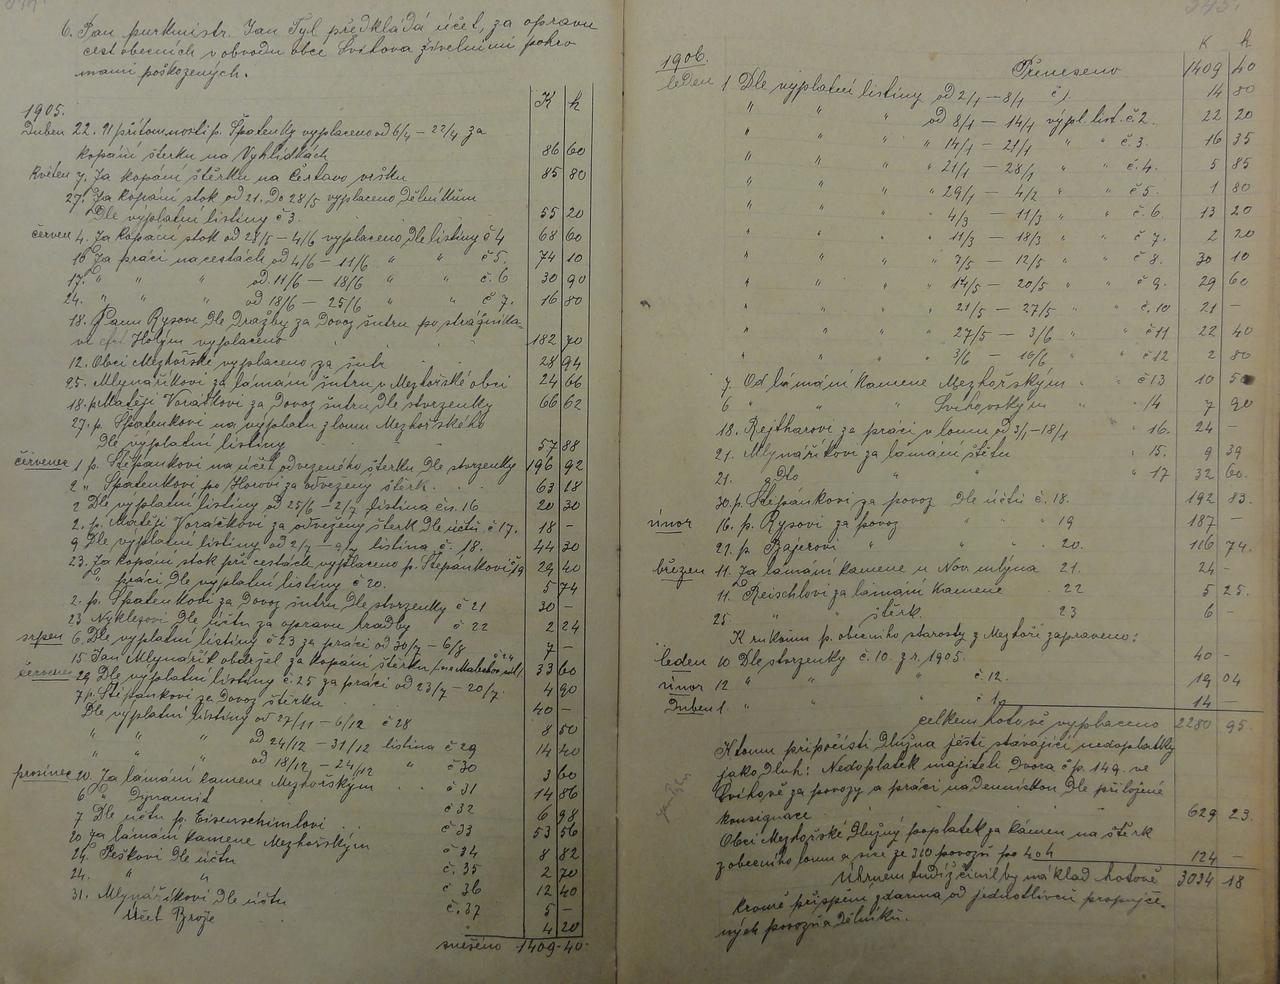 6. Pan purkmistr. Jan Tyl předkládá účet, za opravu
cest obecních v obvodu obce Švihova živelními pohro
mami poškozených.
K h
1905.
Duben 22. V přítomnosti p. Špatenky vyplaceno od 6/4 – 22/4 za
kopání šterku na Vyhlídkách 86 60
Květen 7. Za kopání štěrku na vršku 85 80
27. Za kopání stok od 21. Do 28/5 vyplaceno Dělníkům
Dle výplatní listiny č 3. 55 20
červen 4. Za kopání stok od 28/5 – 4/6 vyplaceno Dle listiny č 4 68 60
Za práci na cestách od 4/6 – 11/6 " " č 5. 74 10
17. " " " od 11/6 – 18/6 " " č. 6 30 90
24. " " " od 18/6 – 25/6 " " č 7. 16 80
18. Panu Rysovi Dle Dražby za Dovoz šutru po
Holým vyplaceno 182 70
12. Obci Mezhořské vyplaceno za šutr 28 94
25. Mlynaříkovi za lámání šutru v Mezhořské obci 24 66
18. p. Matěji Voráčkovi za Dovoz šutru Dle stvrzenky 66 62
27. p. Špatenkovi na výplatu z lomu Mezhořského
Dle výplatní listiny 57 88
červenec 1 p. Štěpánkovi na účet odvezeného šterku Dle stvrzenky 196 92
2 " Špatenkovi po Horovi za odvežený šterk 63 18
2 Dle výplatní listiny od 25/6 – 2/7 listina čís. 16 20 30
2. p. Matěji Voráčkovi za odvežený šterk Dle účtu č 17. 18 –
9 Dle výplatní listiny od 2/7 – 9/7 listina č. 18. 44 30
23. Za kopání stok při cestách vyplaceno p. Štěpánkovi č 19 29 40
" práci Dle výplatní listiny č 20. 5 74
2. p. Špatenkovi za Dovoz šutru Dle stvrzenky č 21 30 –
23 Nyklesovi Dle účtu za opravu hradby č 22 2 24
srpen 6. Dle výplatní listiny č 23 za práci od 30/7 – 6/8 7 –
15. Jan Mlynařík obdržel za kopání štěrku č 24 33 60
červenec 29 Dle výplatní listiny č. 25 za práci od 23/7 – 20/7. 4 90
7 p. Štěpánkovi za Dovoz štěrku 40 –
Dle výplatní listiny od 27/11 – 6/12 č 28 8 50
" " " od 24/12 – 31/12 listina č 29 14 40
" " " od 18/12 – 24/12 " č 30 3 60
prosinec 20. Za lámání kamene Mezhořským č 31 14 86
6 " Dynamit č 32 6 98
7 Dle účtu p. Eisenschimlovi č 33 53 56
20 Za lámání kamene Mezhořským č 34 8 82
24. Peškovi Dle účtu č. 35 2 70
24. " " č 36 12 40
31. Mlynaříkovi Dle účtu č. 37 5 –
Účet Brože 4 20
snešeno 1409 40
K h
1906. Přeneseno 1409 40
leden 1 Dle výplatní listiny od 2/1 – 8/1 č 1. 14 80
" " " od 8/1 – 14/1 výpl. list. č 2. 22 20
" " " " 14/1 – 21/1 " " č. 3. 16 35
" " " " 21/1 – 28/1 " " č. 4. 5 85
" " " " 29/1 – 4/2 " " č 5. 1 80
" " " " 4/3 – 11/3 " " č. 6. 13 20
" " " " 11/3 – 18/3 " " č 7. 2 20
" " " " 7/5 – 12/5 " " č 8. 30 10
" " " " 14/5 – 20/5 " " č 9. 29 60
" " " " 21/5 – 27/5 " " č. 10 21 –
" " " " 27/5 – 3/6 " " č 11 22 40
" " " " 3/6 – 10/6 " " č 12 2 80
7. Od lámání kamene Mezhořským " č 13 10
6 " " " Švihovským " 14 7 90
18. Rejtharovi za práci v lomu od 3/1 – 18/1 " 16. 24 –
21. Mlynaříkovi za lámání štětu " 15. 9 39
21. Dto " " 17 32 60.
30. p. Štěpánkovi za povoz Dle účtu č. 18. 192 83.
únor 16. p. Rysovi za povoz " " " 19 187 –
27. p. Bajerovi " " " " 20. 116 74.
březen 11. Za lámání kamene u Nov. mlýna 21. 24 –
11. Reischlovi za lámání kamene 22 5 25.
25. " " štěrk 23 6 –
K rukoum p. obecního starosty z Mezhoří zapraveno:
leden 10 Dle stvrzenky č. 10. z r. 1905. 40 –
únor 12 " " č 12. 19 04
Duben 1. " " č 1. 14 –
celkem hotově vyplaceno 2280 95.
K tomu připočísti Dlužno ještě stávající nedoplatky
jako Dluh: Nedoplatek majiteli Dvora č p. 149. ve
Švihově za povozy a práci nadenníkon Dle přiložené
konsignace 629 23.
Obci Mezhořské Dlužný poplatek za kámen na štěrk
z obecního lomu a sice ze 310 povozů po 40 h 124 –
Úhrnem tudíž činil by náklad hotově 3034 18
kromě přispění zdarma od jednotlivců propůjče-
ných povozů a Dělníků.